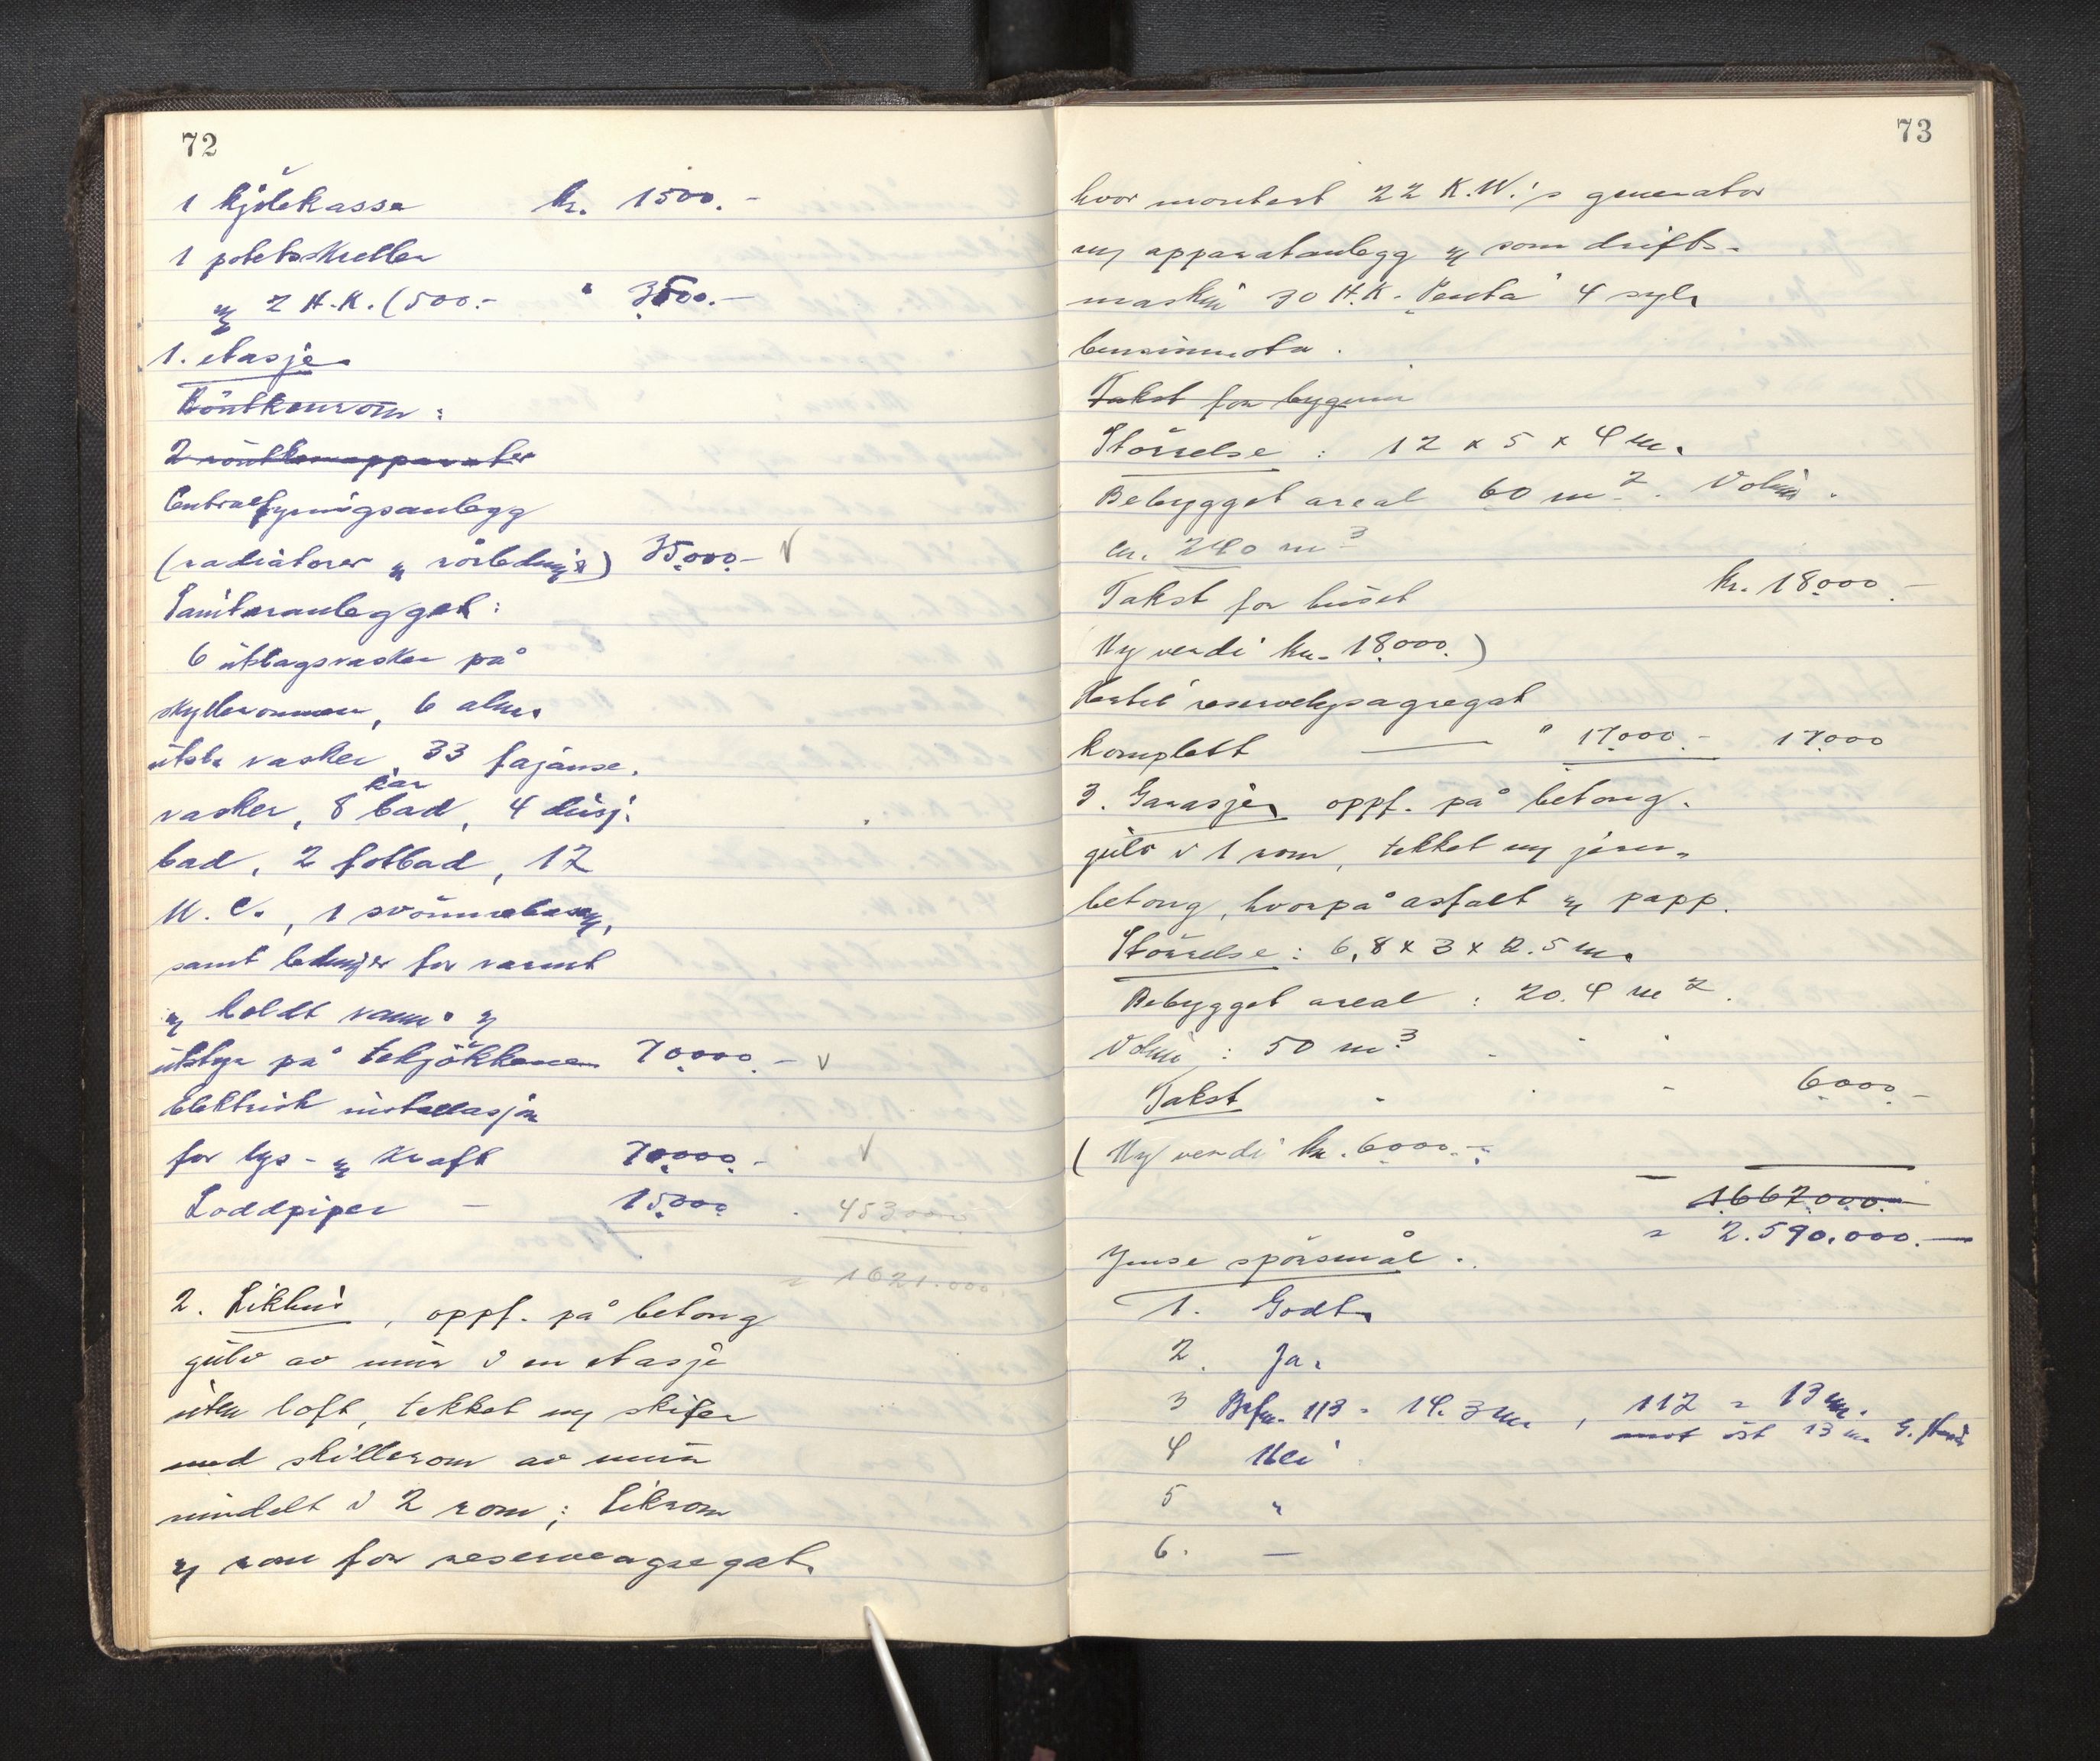 72
1 kjölekassa kr. 1500.-
1 potetskreller
m/ 2 H.K. (500.- " 3500.-
1. etasje
Röntkenrom:
2 röntkenapparater
Centralfyringsanlegg
(radiatorer og rörledninger) 35.000.- V
Sanitæranlegget:
6 utslagsvasker på
skyllerommer, 6 alm.
utsl. vasker, 33 fajanse.
kar
vasker, 8 bad, 4 dusj.
bad, 2 fotbad, 12
W.C., 1 svömmebasseng,
samt ledninger for varmt
og koldt vann og
utstyr på tekjökkener 70.000.- V
Elektrisk installasjon
for lys- og kraft 70.000.- V
Loddpiper - 15.000 453000
1621.000.
2. Likhus, oppf. på betong
gulv av mur i en etasje
uten loft, tekket m/ skifer
med skillerom av mur
inndelt i 2 rom; Likrom
og rom for reserveagregat.
73
hvor montert 22 K.W.'s generator
m/ apparatanlegg og som drifts-
maskin 30 H.K. "Penta" 4 syl.
bensinmotor.
Takst for bygnin
Störrelse: 12 x 5 x 4 m.
Bebygget areal 60 m2. Volum.
ca. 240 m3
Takst for huset kr. 18.000.-
Ny verdi kr. 18.000.)
reservelysagregat
komplett — " 17.000.- 17.000
3. Garasje, oppf. på betong-
gulv i 1 rom, tekket m/ jern-
betong, hvorpå asfalt og papp.
Störrelse: 6,8 x 3 x 2.5 m.
Bebygget areal: 20.4 m2.
Volum: 50 m3
Takst 6000.-
(Ny verdi kr. 6000.-
1.667.000.-
= 2.590.000.-
Ymse spörsmål.
1. Godt.
2. Ja.
3 Brfm. 113 = 14.3 m, 112 = 13 m.
mot öst 13 m
4 Nei
5 "
6. —